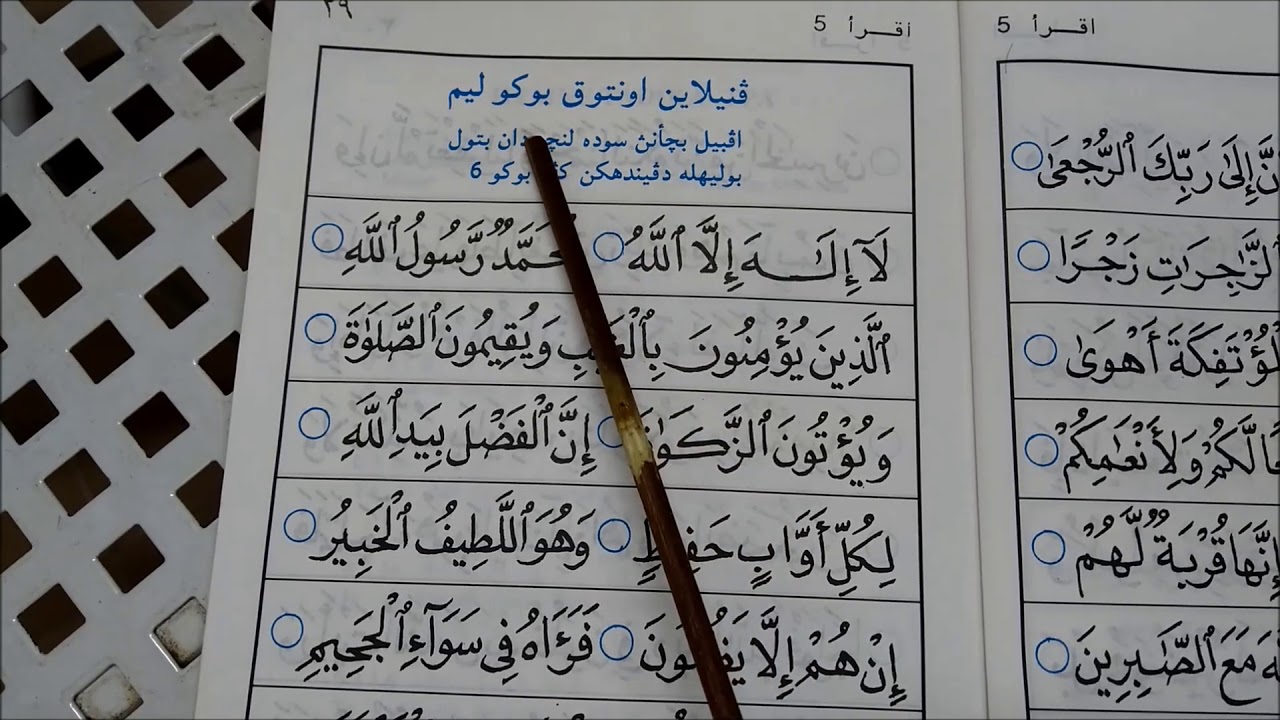 ٣٩
اقــرأ 5
ڤنيلاين اونتوق بوكو ليم
اڤبيل بچاءنڽ سوده لنچر دان بتول
بوليهله دڤيندهكن كڤد بوكو 6
لَآ إِلَـٰهَ إِلَّا ٱللَّهُ مُحَمَّدٌ رَّسُولُ ٱللَّهِ
ٱلَّذِينَ يُؤْمِنُونَ بِٱلْغَيْبِ وَيُقِيمُونَ ٱلصَّلَوٰةَ
وَيُؤْتُونَ ٱلزَّكَوٰةَ إِنَّ ٱلْفَضْلَ بِيَدِ ٱللَّهِ
لِكُلِّ أَوَّابٍ حَفِيظٍ وَهُوَ ٱللَّطِيفُ ٱلْخَبِيرُ
إِنْ هُمْ إِلَّا يَظُنُّونَ فَرَءَاهُ فِى سَوَآءِ ٱلْجَحِيمِ
اقــرأ 5
إِلَىٰ رَبِّكَ ٱلرُّجْعَىٰ
زَجْرًا
أَهْوَىٰ
وَلِأَنْعَـٰمِكُمْ
إِنَّهَا قُرْبَةٌ لَّهُمْ
مَعَ ٱلصَّـٰبِرِينَ